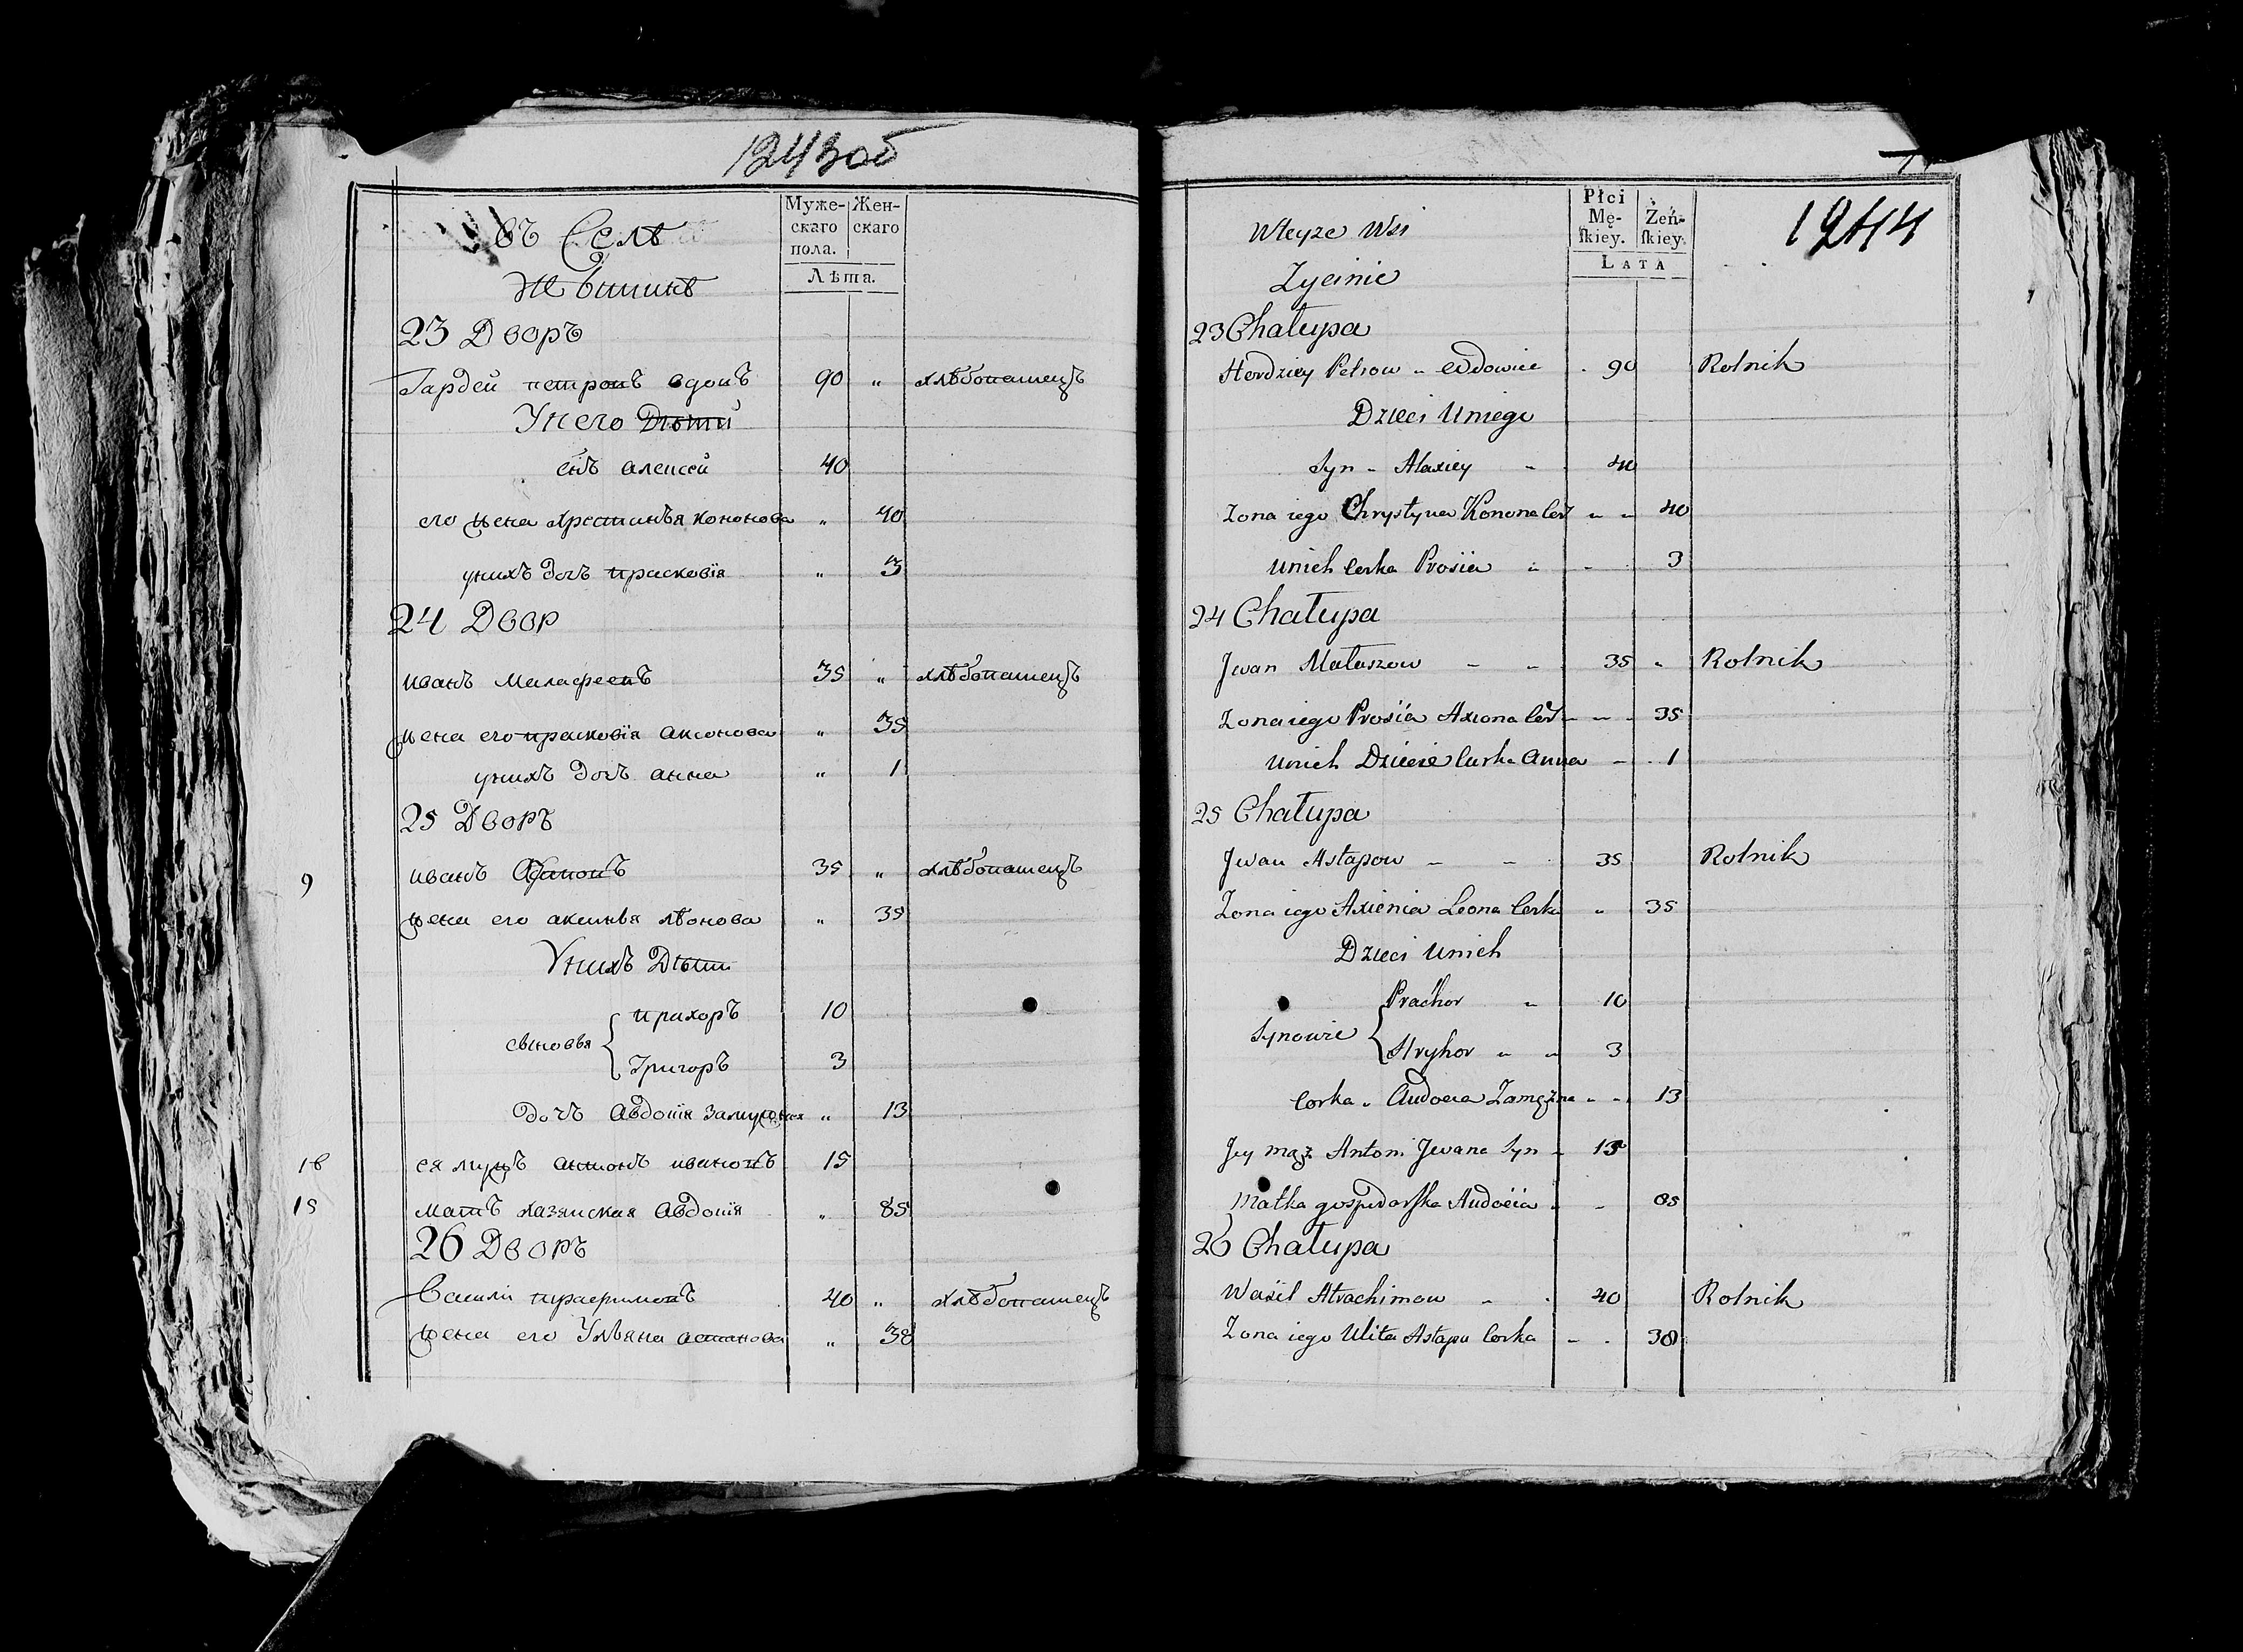 1243 об
въ Селѣ
Муже-скаго пола.
Жен-скаго
Лѣта.
23 Дворъ
Гардей петровъ вдовъ 90 " хлѣбопашецъ
Унего Дѣти
снъ алексей 40
его жена христинья кононова " 40
унихъ дочъ прасковїя " 3
24 Двор
иванъ малафеевъ 35 " хлѣбопашецъ
жена его прасковїя аксонова " 35
унихъ дочъ анна " 1
25 Дворъ
9 иванъ 35 " хлѣбопашецъ
жена его аксинья лѣонова " 35
Унихъ Дѣти
сыновья { прихоръ 10
Григоръ 3
дочъ авдотїя замужная " 13
ея мужъ антонъ ивановъ 15
15 матъ хазяиская авдотїя " 85
26 Дворъ
Василї 40 " хлѣбопашецъ
жена его Ульяна астапова " 38
1244
Wteyze Wsi
Płci Mę-skiey.
Żeń-skiey.
LATA
Zycinie
23 Chałupa
Hordziey Petrow - Wdowiec 90 Rolnik
Dzieci Uniego
Syn - Alaxiey - 40
Zona iego Chrystyna Konona Cor - - 40
Unich Corka Prosia - - 3
24 Chałupa
Jwan Małaszow - - 35 - Rolnik
Zona iego Prosia Axiona Cor - - 35
Unich Dziecie Curka Anna - 1
25 Chałupa
Jwan Astapow - - 35 Rolnik
Zona iego Axienia Leona Corka " 35
Dzieci Unich
Synowie { Prachor - 10
Hryhor - - 3
Corka - Audocia Zamężna - - 13
Jey mąż Antoni Jwana Syn - 15
Matka gospodarska Audocia - - 85
26 Chałupa
Wasil Atrachimow - 40 Rolnik
Zona iego Ulita Astapa Corka - - 38